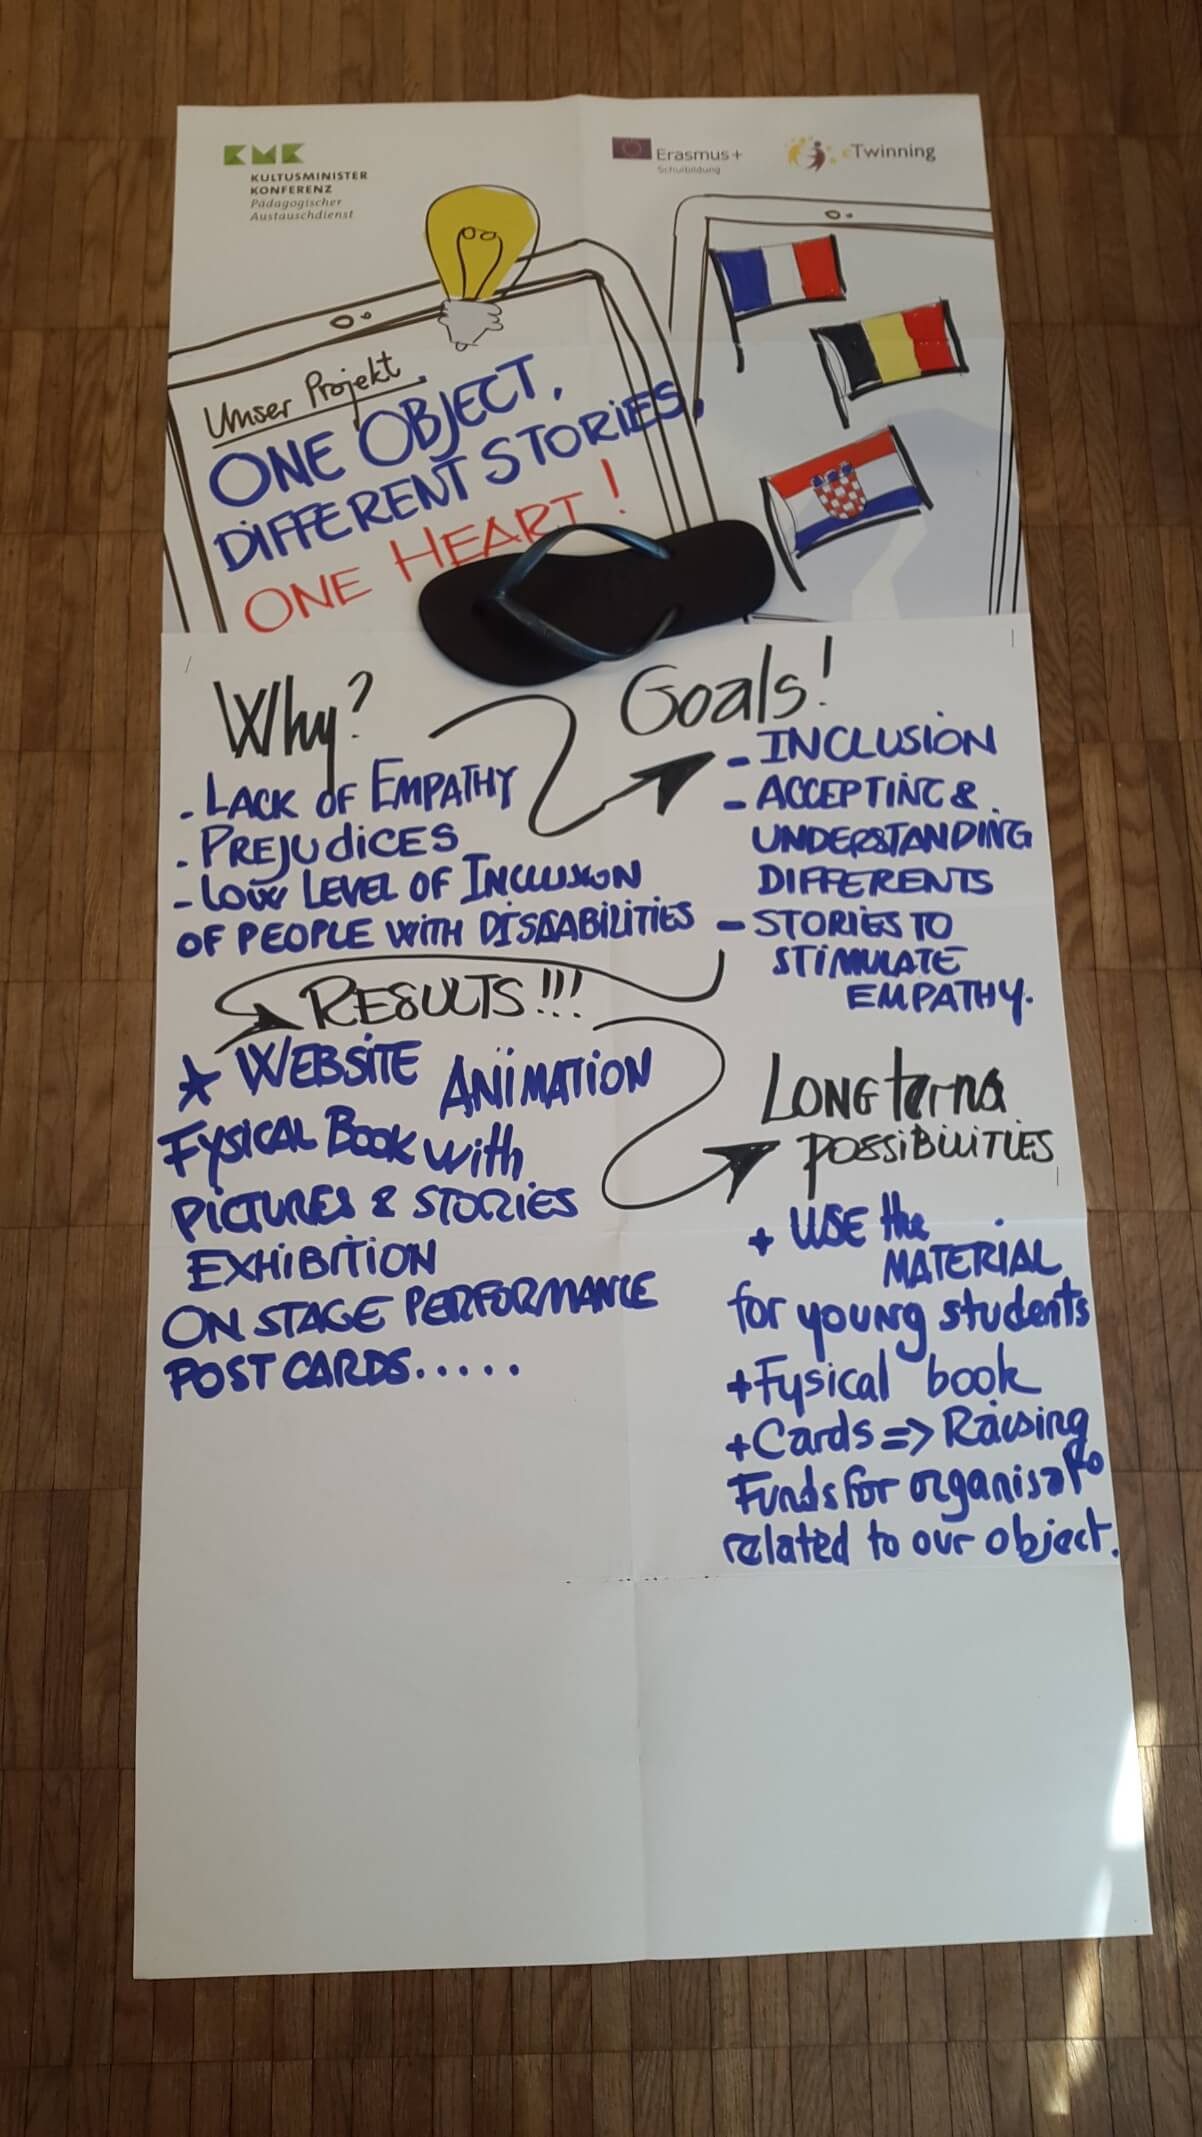 KMK
KULTUSMINISTER
KONFERENZ
Pädagogischer
Austauschdienst
Erasmus+
Schulbildung
eTwinning
Unser Projekt
ONE OBJECT,
DIFFERENT STORIES,
ONE HEART!
Why?
- LACK OF EMPATHY
- PREJUDICES
- LOW LEVEL OF INCLUSION
OF PEOPLE WITH DISAABILITIES
Goals!
- INCLUSION
- ACCEPTING &
UNDERSTANDING
DIFFERENTS
- STORIES TO
STIMULATE
EMPATHY.
RESULTS!!!
* WEBSITE ANIMATION
FYSICAL BOOK with
PICTURES & STORIES
EXHIBITION
ON STAGE PERFORMANCE
POST CARDS.....
LONG term
POSSIBILITIES
+ USE the
MATERIAL
for young students
+ Fysical book
+ Cards => Raising
Funds for
related to our object.